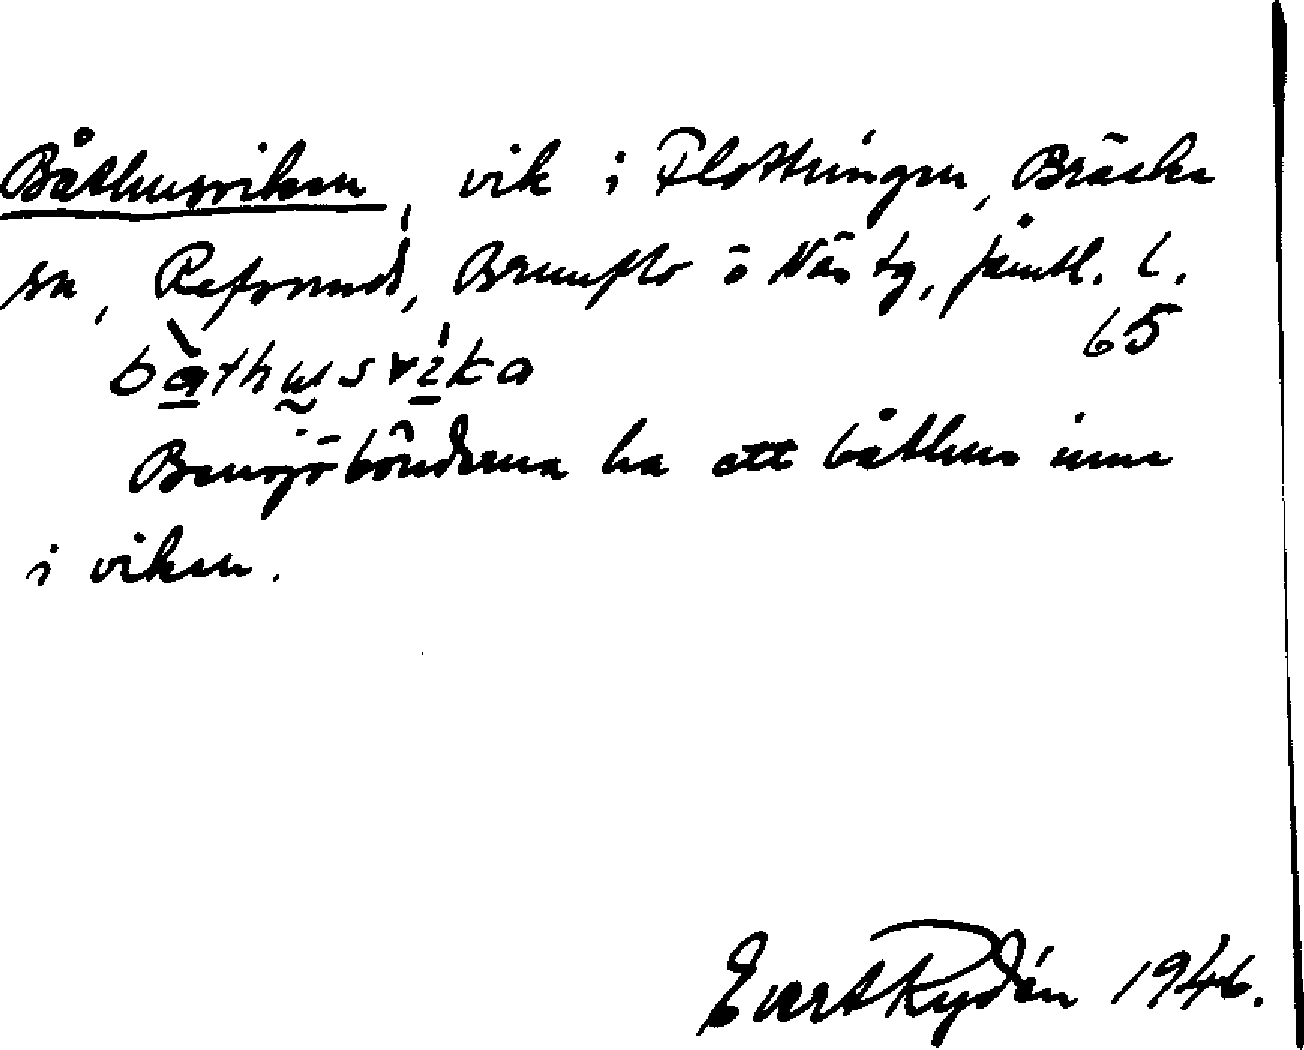 Båthusviken, vik i Flottningen, Bräcke
sn, Refsund, Brunflo o Näs tg, Jämtl. l.
65
båthusvika
Bensjöbönderna ha ett båthus inne
i viken.
Evert Rydén 1946.